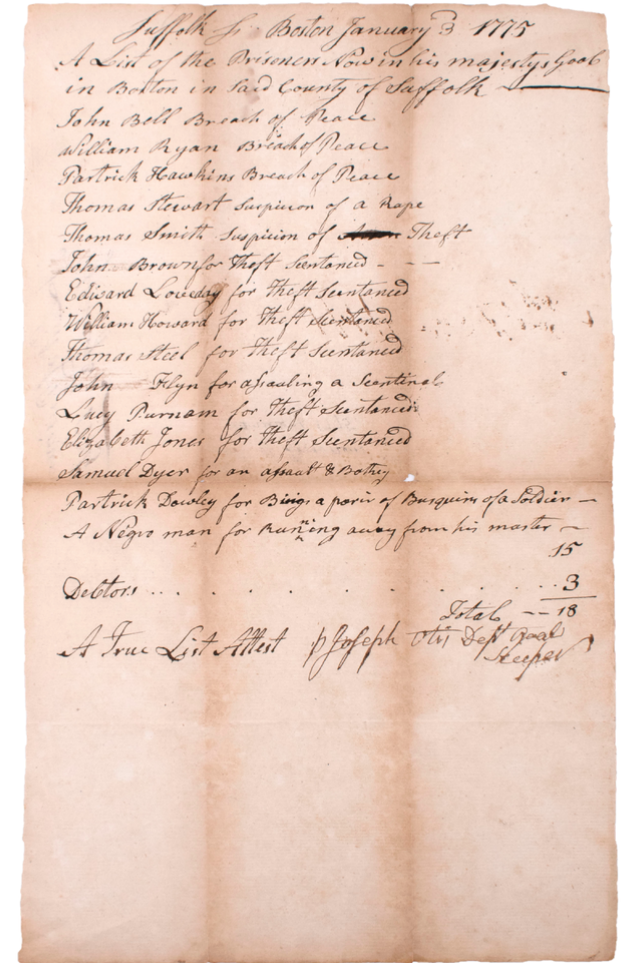 Suffolk Ss Boston January 3 1775
A List of the Prisoners Now in his majestys Goal
in Boston in Said County of Suffolk
John Bell Breach of Peace
William Ryan Breach of Peace
Partrick Hawkins Breach of Peace
Thomas Stewart Suspicion of a Rape
Thomas Smith Suspicion of Theft
John Brown for Theft Sentanced
Edward Loveday for Theft Sentanced
William Howard for Theft Sentanced
Thomas Steel for Theft Sentanced
John Flyn for assauling a Sentinal
Lucy Purnam for Theft Sentanced
Elizabeth Jones for Theft Sentanced
Samuel Dyer for an assault & Battry
Partrick Dowley for a parir of Busquirs of a Soldier
A Negro man for Running away from his master
15
Debtors . . . . . . . 3
Total -- 18
A True List Attest p Joseph Otis Dept Goal
Keeper